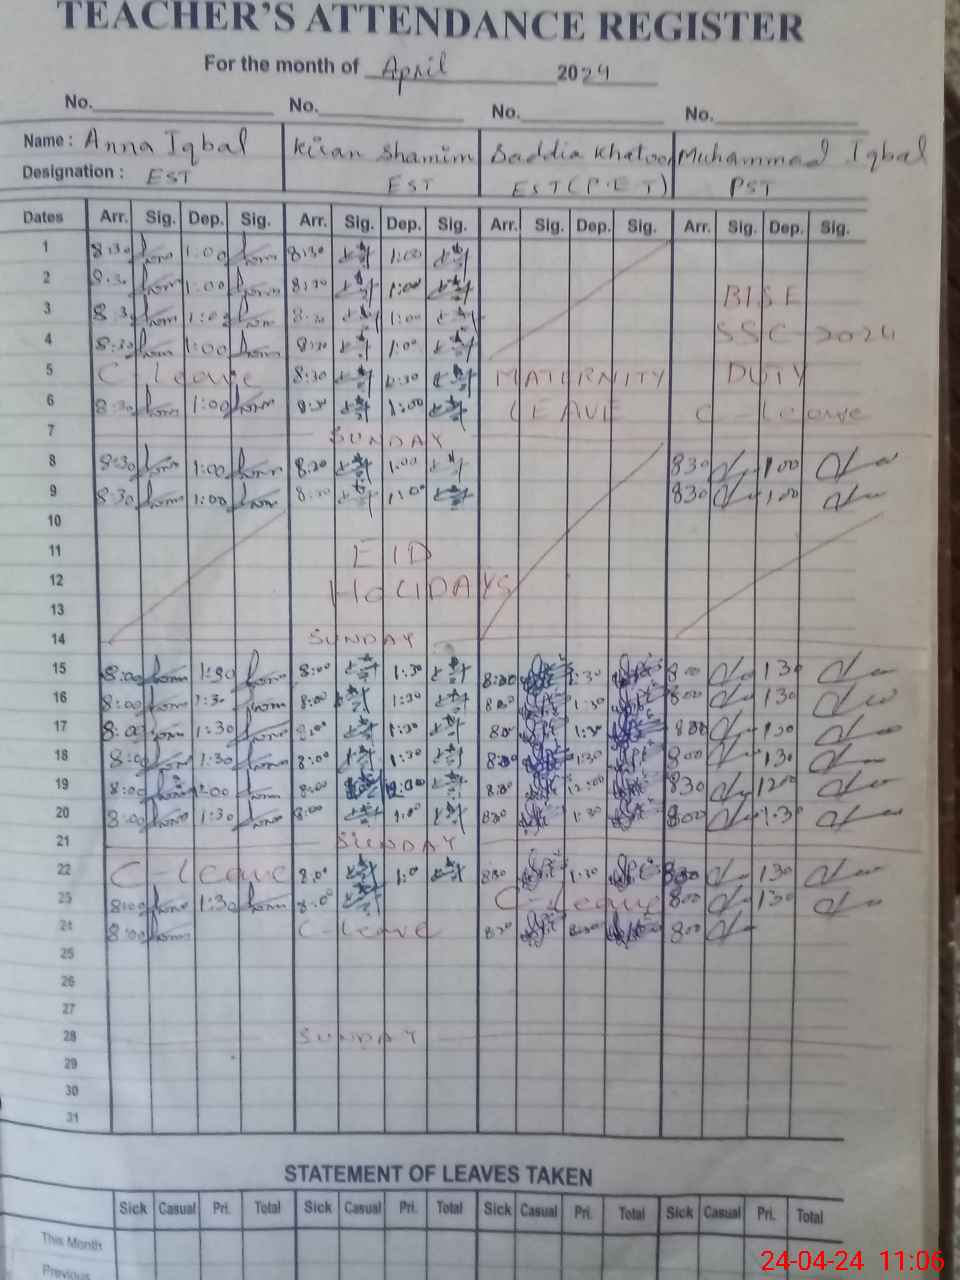 TEACHER'S ATTENDANCE REGISTER
For the month of April 2024
No. No. No. No.
Name : Anna Iqbal Kiran Shamim Saddia Khatoon Muhammad Iqbal
Designation : EST EST EST (P.E.T) PST
Dates Arr. Sig. Dep. Sig. Arr. Sig. Dep. Sig. Arr. Sig. Dep. Sig. Arr. Sig. Dep. Sig.
1 8:30 1:00 8:30 1:00
2 8:30 1:00 8:30 1:00 BISE
3 8:30 1:00 8:30 1:00
4 8:30 1:00 8:30 1:00 SSC 2024
5 C-leave 8:30 MATERNITY DUTY
6 8:30 1:00 8:30 1:00 LEAVE C-leave
7 SUNDAY
8 8:30 1:00 8:30 1:00 830 100
9 8:30 1:00 8:30 1:00 830 100
10
11 EID
12 HOLIDAYS
13
14 SUNDAY
15 8:00 1:30 8:00 1:30 8:00 1:30 800 130
16 8:00 1:30 8:00 1:30 800 1:30 800 130
17 8:00 1:30 8:00 1:30 800 1:30 800 130
18 8:00 1:30 8:00 1:30 800 1:30 800 130
19 8:00 12:00 8:00 8:00 12:00 830 1200
20 8:00 1:30 8:00 1:30 1:30
21 SUNDAY
22 C-leave 8:00 1:30 130
23 8:00 1:30 8:00 C-leave 800 130
24 8:00 C-leave 800
25
26
27
28 SUNDAY
29
30
31
STATEMENT OF LEAVES TAKEN
Sick Casual Pri. Total Sick Casual Pri. Total Sick Casual Pri. Total Sick Casual Pri. Total
This Month
Previous
24-04-24 11:06